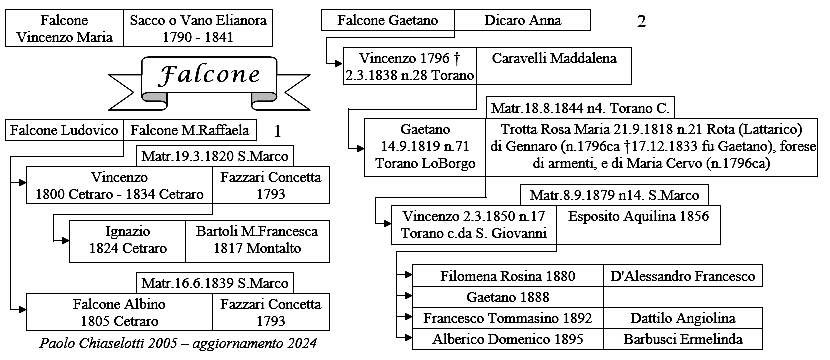 Falcone
Vincenzo Maria
Sacco o Vano Elianora
1790 - 1841
Falcone
Falcone Ludovico
Falcone M.Raffaela
1
Matr.19.3.1820 S.Marco
Vincenzo
1800 Cetraro - 1834 Cetraro
Fazzari Concetta
1793
Ignazio
1824 Cetraro
Bartoli M.Francesca
1817 Montalto
Matr.16.6.1839 S.Marco
Falcone Albino
1805 Cetraro
Fazzari Concetta
1793
Paolo Chiaselotti 2005 – aggiornamento 2024
Falcone Gaetano
Dicaro Anna
2
Vincenzo 1796 †
2.3.1838 n.28 Torano
Caravelli Maddalena
Matr.18.8.1844 n4. Torano C.
Gaetano
14.9.1819 n.71
Torano LoBorgo
Trotta Rosa Maria 21.9.1818 n.21 Rota (Lattarico)
di Gennaro (n.1796ca †17.12.1833 fu Gaetano), forese
di armenti, e di Maria Cervo (n.1796ca)
Matr.8.9.1879 n14. S.Marco
Vincenzo 2.3.1850 n.17
Torano c.da S. Giovanni
Esposito Aquilina 1856
Filomena Rosina 1880
D'Alessandro Francesco
Gaetano 1888
Francesco Tommasino 1892
Dattilo Angiolina
Alberico Domenico 1895
Barbusci Ermelinda